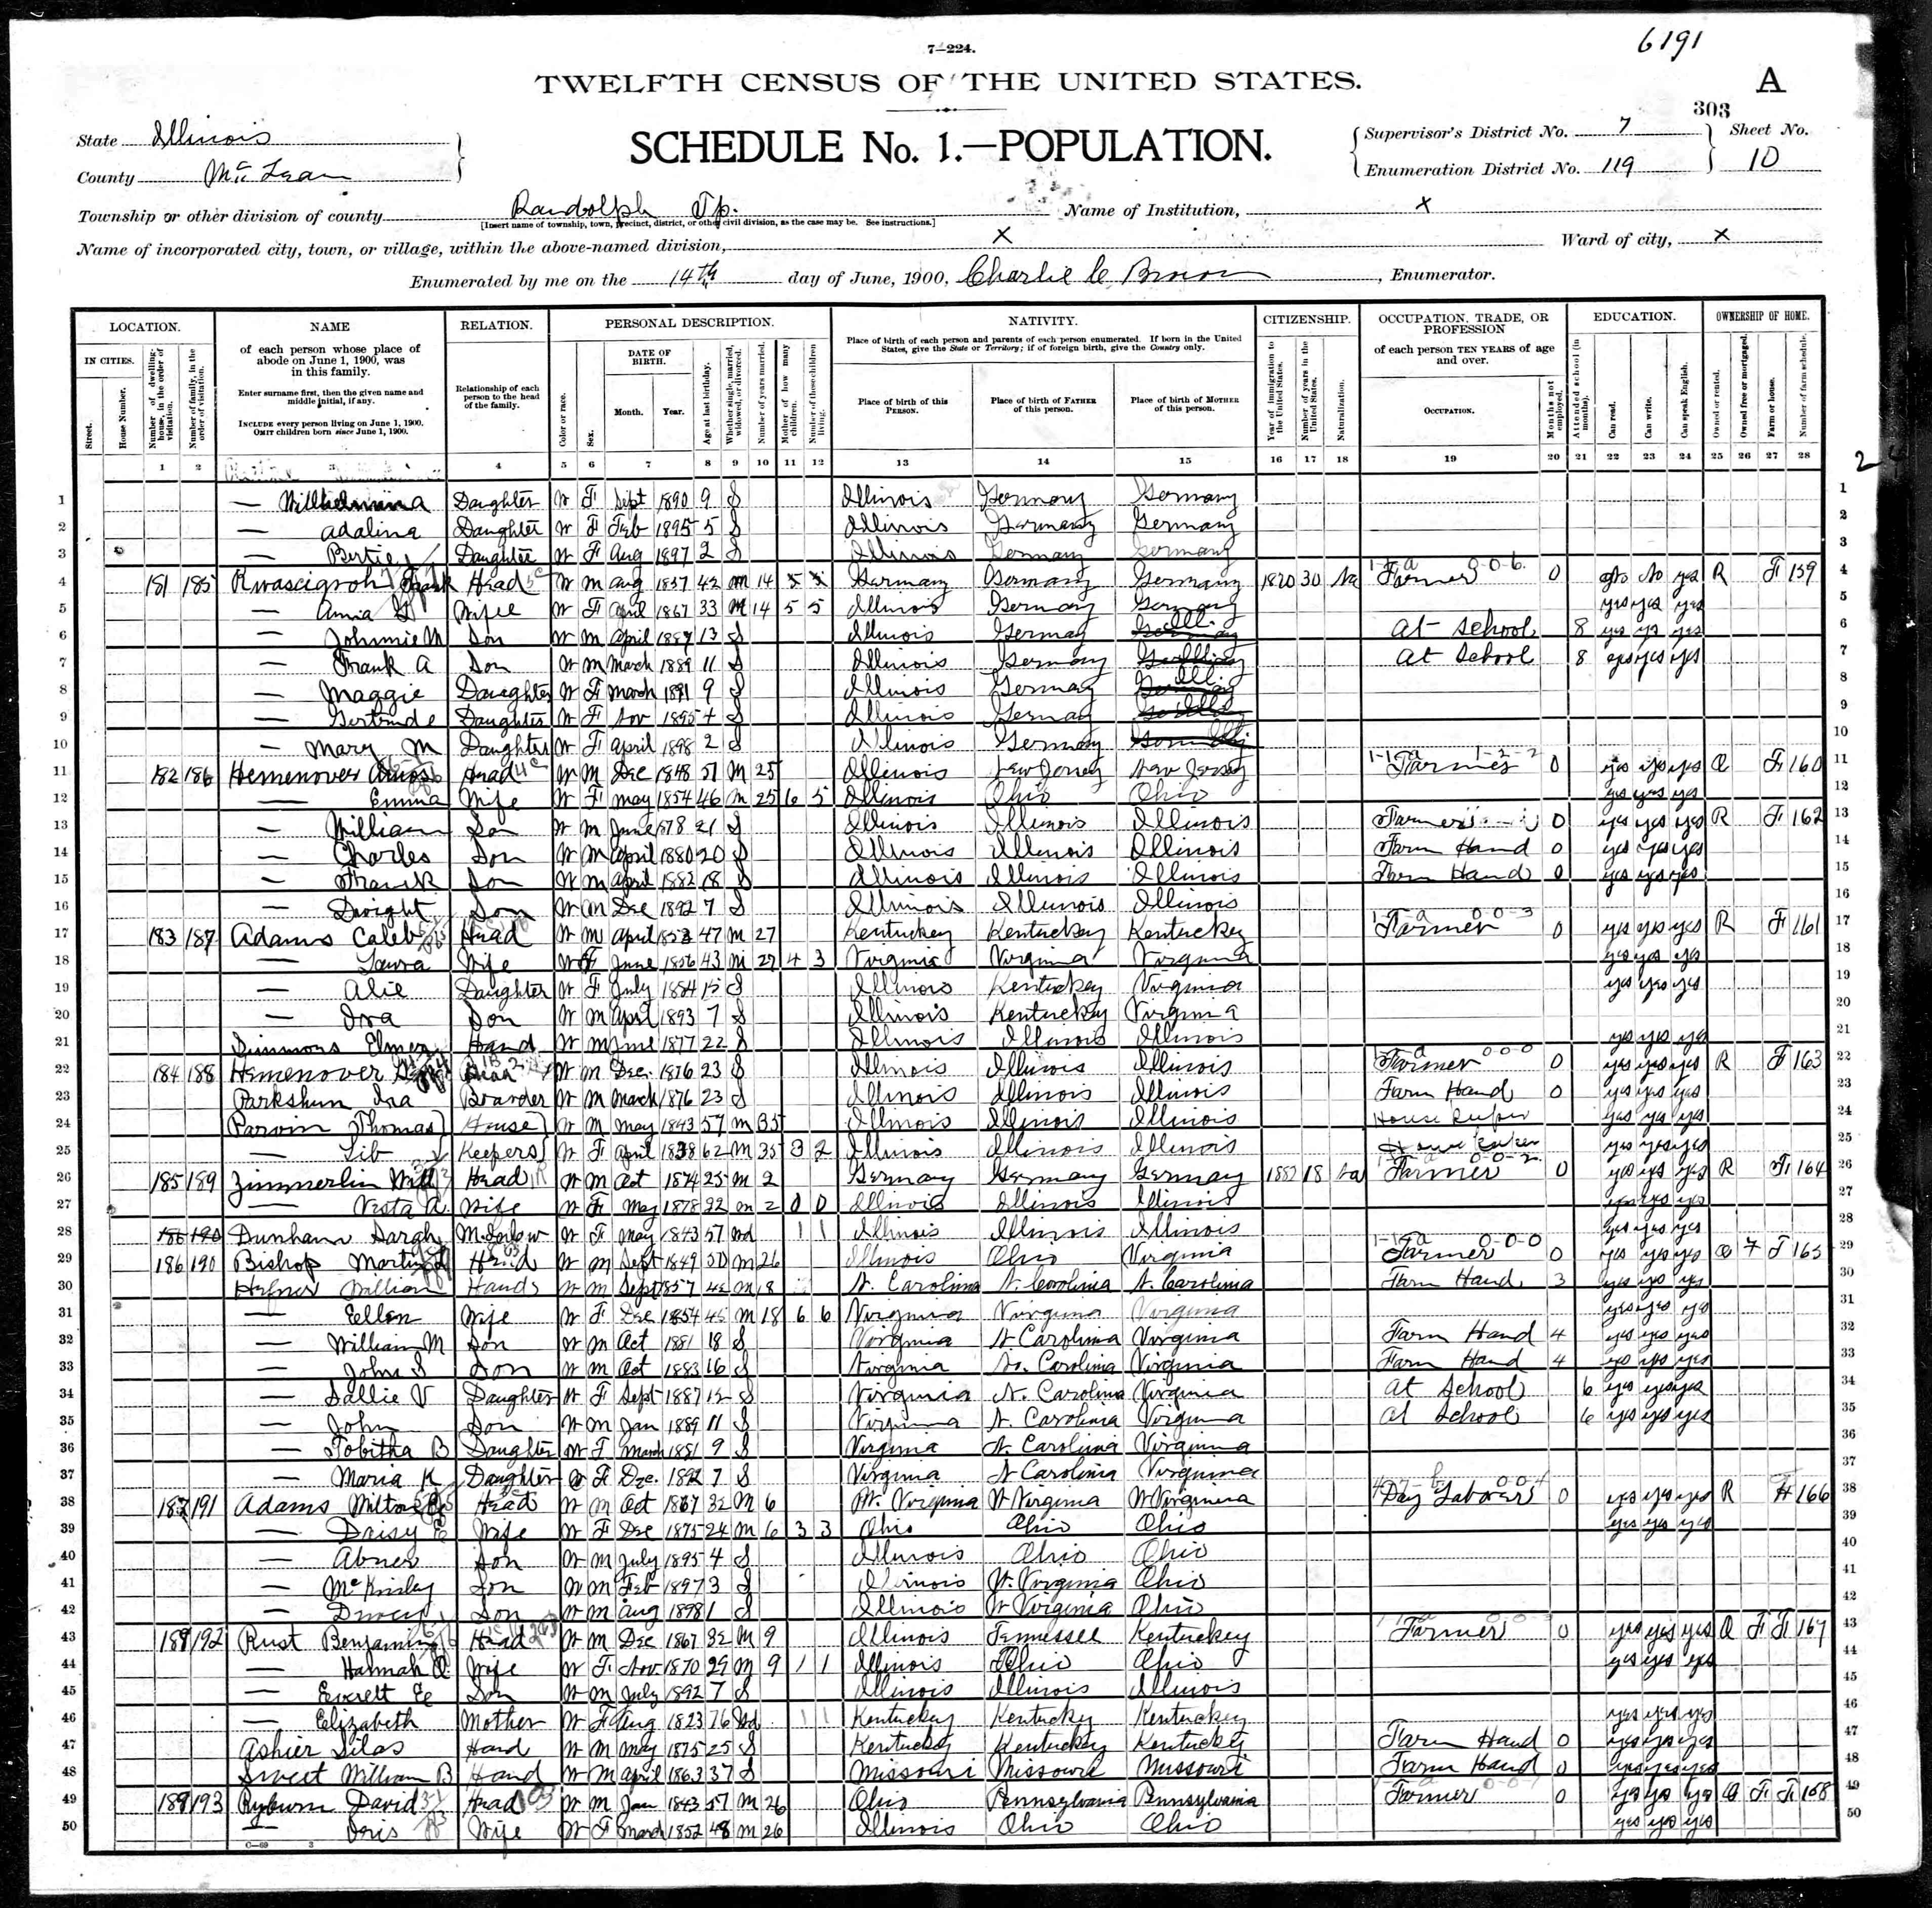 6191
7—224.
TWELFTH CENSUS OF THE UNITED STATES.
A
303
State Illinois
County McLean
SCHEDULE No. 1.—POPULATION.
Supervisor's District No. 7
Enumeration District No. 119
Sheet No. 10
Township or other division of county Randolph Tp.
[Insert name of township, town, precinct, district, or other civil division, as the case may be. See instructions.]
Name of Institution, X
Name of incorporated city, town, or village, within the above-named division, X
Ward of city, X
Enumerated by me on the 14th day of June, 1900, Charlie C Brown, Enumerator.
LOCATION. NAME RELATION. PERSONAL DESCRIPTION. NATIVITY. CITIZENSHIP. OCCUPATION, TRADE, OR PROFESSION EDUCATION. OWNERSHIP OF HOME.
IN CITIES. Street. House Number. Number of dwelling-house, in the order of visitation. Number of family, in the order of visitation.
of each person whose place of abode on June 1, 1900, was in this family.
Enter surname first, then the given name and middle initial, if any.
INCLUDE every person living on June 1, 1900. OMIT children born since June 1, 1900.
Relationship of each person to the head of the family.
Color or race. Sex. DATE OF BIRTH. Month. Year. Age at last birthday. Whether single, married, widowed, or divorced. Number of years married. Mother of how many children. Number of these children living.
Place of birth of each person and parents of each person enumerated. If born in the United States, give the State or Territory; if of foreign birth, give the Country only.
Place of birth of this PERSON. Place of birth of FATHER of this person. Place of birth of MOTHER of this person.
Year of immigration to the United States. Number of years in the United States. Naturalization.
of each person TEN YEARS of age and over.
OCCUPATION. Months not employed.
Attended school (in months). Can read. Can write. Can speak English.
Owned or rented. Owned free or mortgaged. Farm or house. Number of farm schedule.
1 2 3 4 5 6 7 8 9 10 11 12 13 14 15 16 17 18 19 20 21 22 23 24 25 26 27 28
1 — Willhelmina Daughter W F Sept 1890 9 S Illinois Germany Germany 1
2 — Adalina Daughter W F Feb 1895 5 S Illinois Germany Germany 2
3 — Bertie Daughter W F Aug 1897 2 S Illinois Germany Germany 3
4 181 185 Frank Head W M Aug 1857 42 M 14 Germany Germany Germany 30 Na Farmer 0 yes R F 159 4
5 — Anna Wife W F April 1867 33 M 14 5 5 Illinois Germany Germany yes yes yes 5
6 — Johnnie M Son W M April 1887 13 S Illinois Germany Ill At School 8 yes yes yes 6
7 — Frank A Son W M March 1889 11 S Illinois Germany At School 8 yes yes yes 7
8 — Maggie Daughter W F March 1891 9 S Illinois Germany Ill 8
9 — Gertrude Daughter W F Nov 1895 4 S Illinois Germany 9
10 — Mary M Daughter W F April 1898 2 S Illinois Germany 10
11 182 186 Hemenover Amos Head W M Dec 1848 51 M 25 Illinois New Jersey New Jersey Farmer 0 yes yes yes O F 160 11
12 — Emma Wife W F May 1854 46 M 25 6 5 Illinois Ohio Ohio yes yes yes 12
13 — William Son W M June 1878 21 S Illinois Illinois Illinois Farmer 0 yes yes yes R F 162 13
14 — Charles Son W M April 1880 20 S Illinois Illinois Illinois Farm Hand 0 yes yes yes 14
15 — Frank Son W M April 1882 18 S Illinois Illinois Illinois Farm Hand 0 yes yes yes 15
16 — Dwight Son W M Dec 1892 7 S Illinois Illinois Illinois 16
17 183 187 Adams Caleb Head W M April 1853 47 M 27 Kentuckey Kentuckey Kentuckey Farmer 0 yes yes yes R F 161 17
18 — Laura Wife W F June 1856 43 M 27 4 3 Virginia Virginia Virginia yes yes yes 18
19 — Alie Daughter W F July 1884 15 S Illinois Kentuckey Virginia yes yes yes 19
20 — Ira Son W M April 1893 7 S Illinois Kentuckey Virginia 20
21 Simmons Elmer Hand W M June 1877 22 S Illinois Illinois Illinois yes yes yes 21
22 184 188 Hemenover Head W M Dec. 1876 23 S Illinois Illinois Illinois Farmer 0 yes yes yes R F 163 22
23 Parkshun Ira Boarder W M March 1876 23 S Illinois Illinois Illinois Farm Hand 0 yes yes yes 23
24 Parvin Thomas House W M May 1843 57 M 35 Illinois Illinois Illinois House yes yes yes 24
25 — Lib Keepers W F April 1838 62 M 35 3 2 Illinois Illinois Illinois House yes yes yes 25
26 185 189 Zimmerlin Will Head W M Oct 1874 25 M 2 Germany Germany Germany 1882 18 Na Farmer 0 yes yes yes R F 164 26
27 — Vista A Wife W F May 1878 22 M 2 0 0 Illinois Illinois Illinois yes yes yes 27
28 186 190 Dunham W F May 1843 57 Wd 1 1 Illinois Illinois Illinois yes yes yes 28
29 186 190 Bishop Martin Head W M Sept 1849 50 M 26 Illinois Ohio Virginia Farmer 0 yes yes yes O F 165 29
30 William Hands W M Sept 1857 42 M 18 N. Carolina N. Carolina N. Carolina Farm Hand 3 yes yes yes 30
31 — Ellen Wife W F Dec 1854 45 M 18 6 6 Virginia Virginia Virginia yes yes yes 31
32 — William M Son W M Oct 1881 18 S Virginia N Carolina Virginia Farm Hand 4 yes yes yes 32
33 — John S Son W M Oct 1883 16 S Virginia No. Carolina Virginia Farm Hand 4 yes yes yes 33
34 — Sallie V Daughter W F Sept 1887 12 S Virginia N. Carolina Virginia At School 6 yes yes yes 34
35 — John Son W M Jan 1889 11 S Virginia N. Carolina Virginia At School 6 yes yes yes 35
36 — Tobitha B Daughter W F March 1891 9 S Virginia N Carolina Virginia 36
37 — Maria K Daughter W F Dec. 1892 7 S Virginia N Carolina Virginia 37
38 187 191 Adams Milton Head W M Oct 1867 32 M 6 W. Virginia W Virginia W Virginia Day Laborer 0 yes yes yes R H 166 38
39 — Daisy E Wife W F Dec 1875 24 M 6 3 3 Ohio Ohio Ohio yes yes yes 39
40 — Abner Son W M July 1895 4 S Illinois Ohio Ohio 40
41 — McKinley Son W M Feb 1897 3 S Illinois W. Virginia Ohio 41
42 — Son W M Aug 1898 1 S Illinois W Virginia Ohio 42
43 188 192 Rust Benjamin Head W M Dec 1867 32 M 9 Illinois Tennessee Kentuckey Farmer 0 yes yes yes O F F 167 43
44 — Hannah Wife W F Nov 1870 29 M 9 1 1 Illinois Ohio Ohio yes yes yes 44
45 — Everett E Son W M July 1892 7 S Illinois Illinois Illinois 45
46 — Elizabeth Mother W F Aug 1823 76 Wd 1 1 Kentuckey Kentuckey Kentuckey yes yes yes 46
47 Ashier Silas Hand W M May 1875 25 S Kentuckey Kentuckey Kentuckey Farm Hand 0 yes yes yes 47
48 Sweet William B Hand W M April 1863 37 S Missouri Missouri Missouri Farm Hand 0 yes yes yes 48
49 189 193 Ryburn David Head W M Jan 1843 57 M 26 Ohio Pennsylvania Pennsylvania Farmer 0 yes yes yes O F F 168 49
50 — Doris Wife W F March 1852 48 M 26 Illinois Ohio Ohio yes yes yes 50
C—69 3